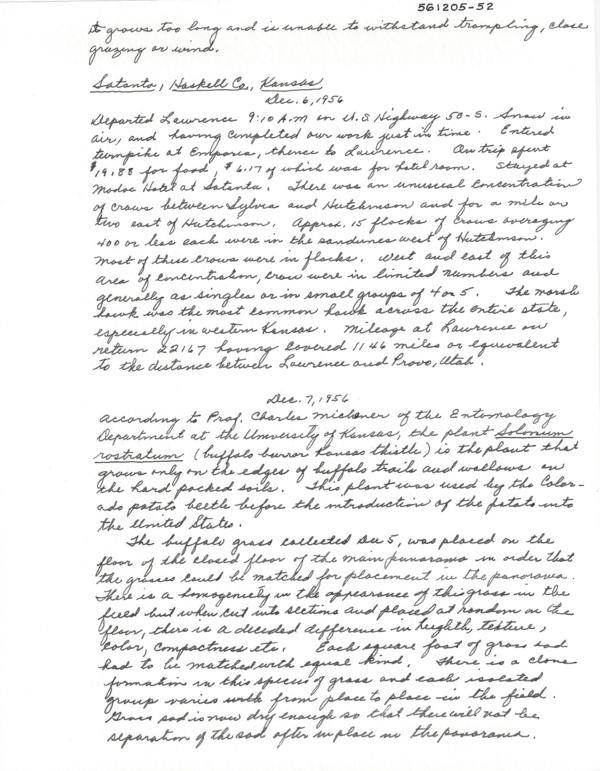 561205-52
it grows too long and is unable to withstand trampling, close
grazing or wind.
Satanta, Haskell Co., Kansas
Dec. 6, 1956
Departed Lawrence 9:10 A.M on U.S Highway 50-S. Snow in
air, and having completed our work just in time. Entered
turnpike at Emporia, thence to Lawrence. On trip spent
$19.88 for food, $6.17 of which was for hotel room. Stayed at
Modoc Hotel at Satanta. There was an unusual concentration
of crows between Sylvia and Hutchinson and for a mile or
two east of Hutchinson. Approx. 15 flocks of crows averaging
400 or less each were in the sandunes west of Hutchinson.
Most of these crows were in flocks. West and east of this
area of concentration, crow were in limited numbers and
generally as singles or in small groups of 4 or 5. The marsh
hawk was the most common hawk across the entire state,
especially in western Kansas. Mileage at Lawrence on
return 22167 having covered 1146 miles or equivalent
to the distance between Lawrence and Provo, Utah.
Dec. 7, 1956
According to Prof. Charles Michener of the Entomology
Department at the University of Kansas, the plant Solonum
rostratum (buffalo burr or Kansas thistle) is the plant that
grows only on the edges of buffalo trails and wallows on
the hard packed soils. This plant was used by the Color-
ado potato beetle before the introduction of the potato into
the United States.
The buffalo grass collected Dec 5, was placed on the
floor of the closed floor of the main panorama in order that
the grasses could be matched for placement in the panorama.
There is a homogeneity in the appearance of this grass in the
field but when cut into sections and placed at random on the
floor, there is a decided difference in heighth, texture,
color, compactness etc. Each square foot of grass sod
had to be matched with equal kind. There is a clone
formation in this species of grass and each isolated
group varies with from place to place in the field.
Grass sod is now dry enough so that there will not be
separation of the sod after in place in the panorama.